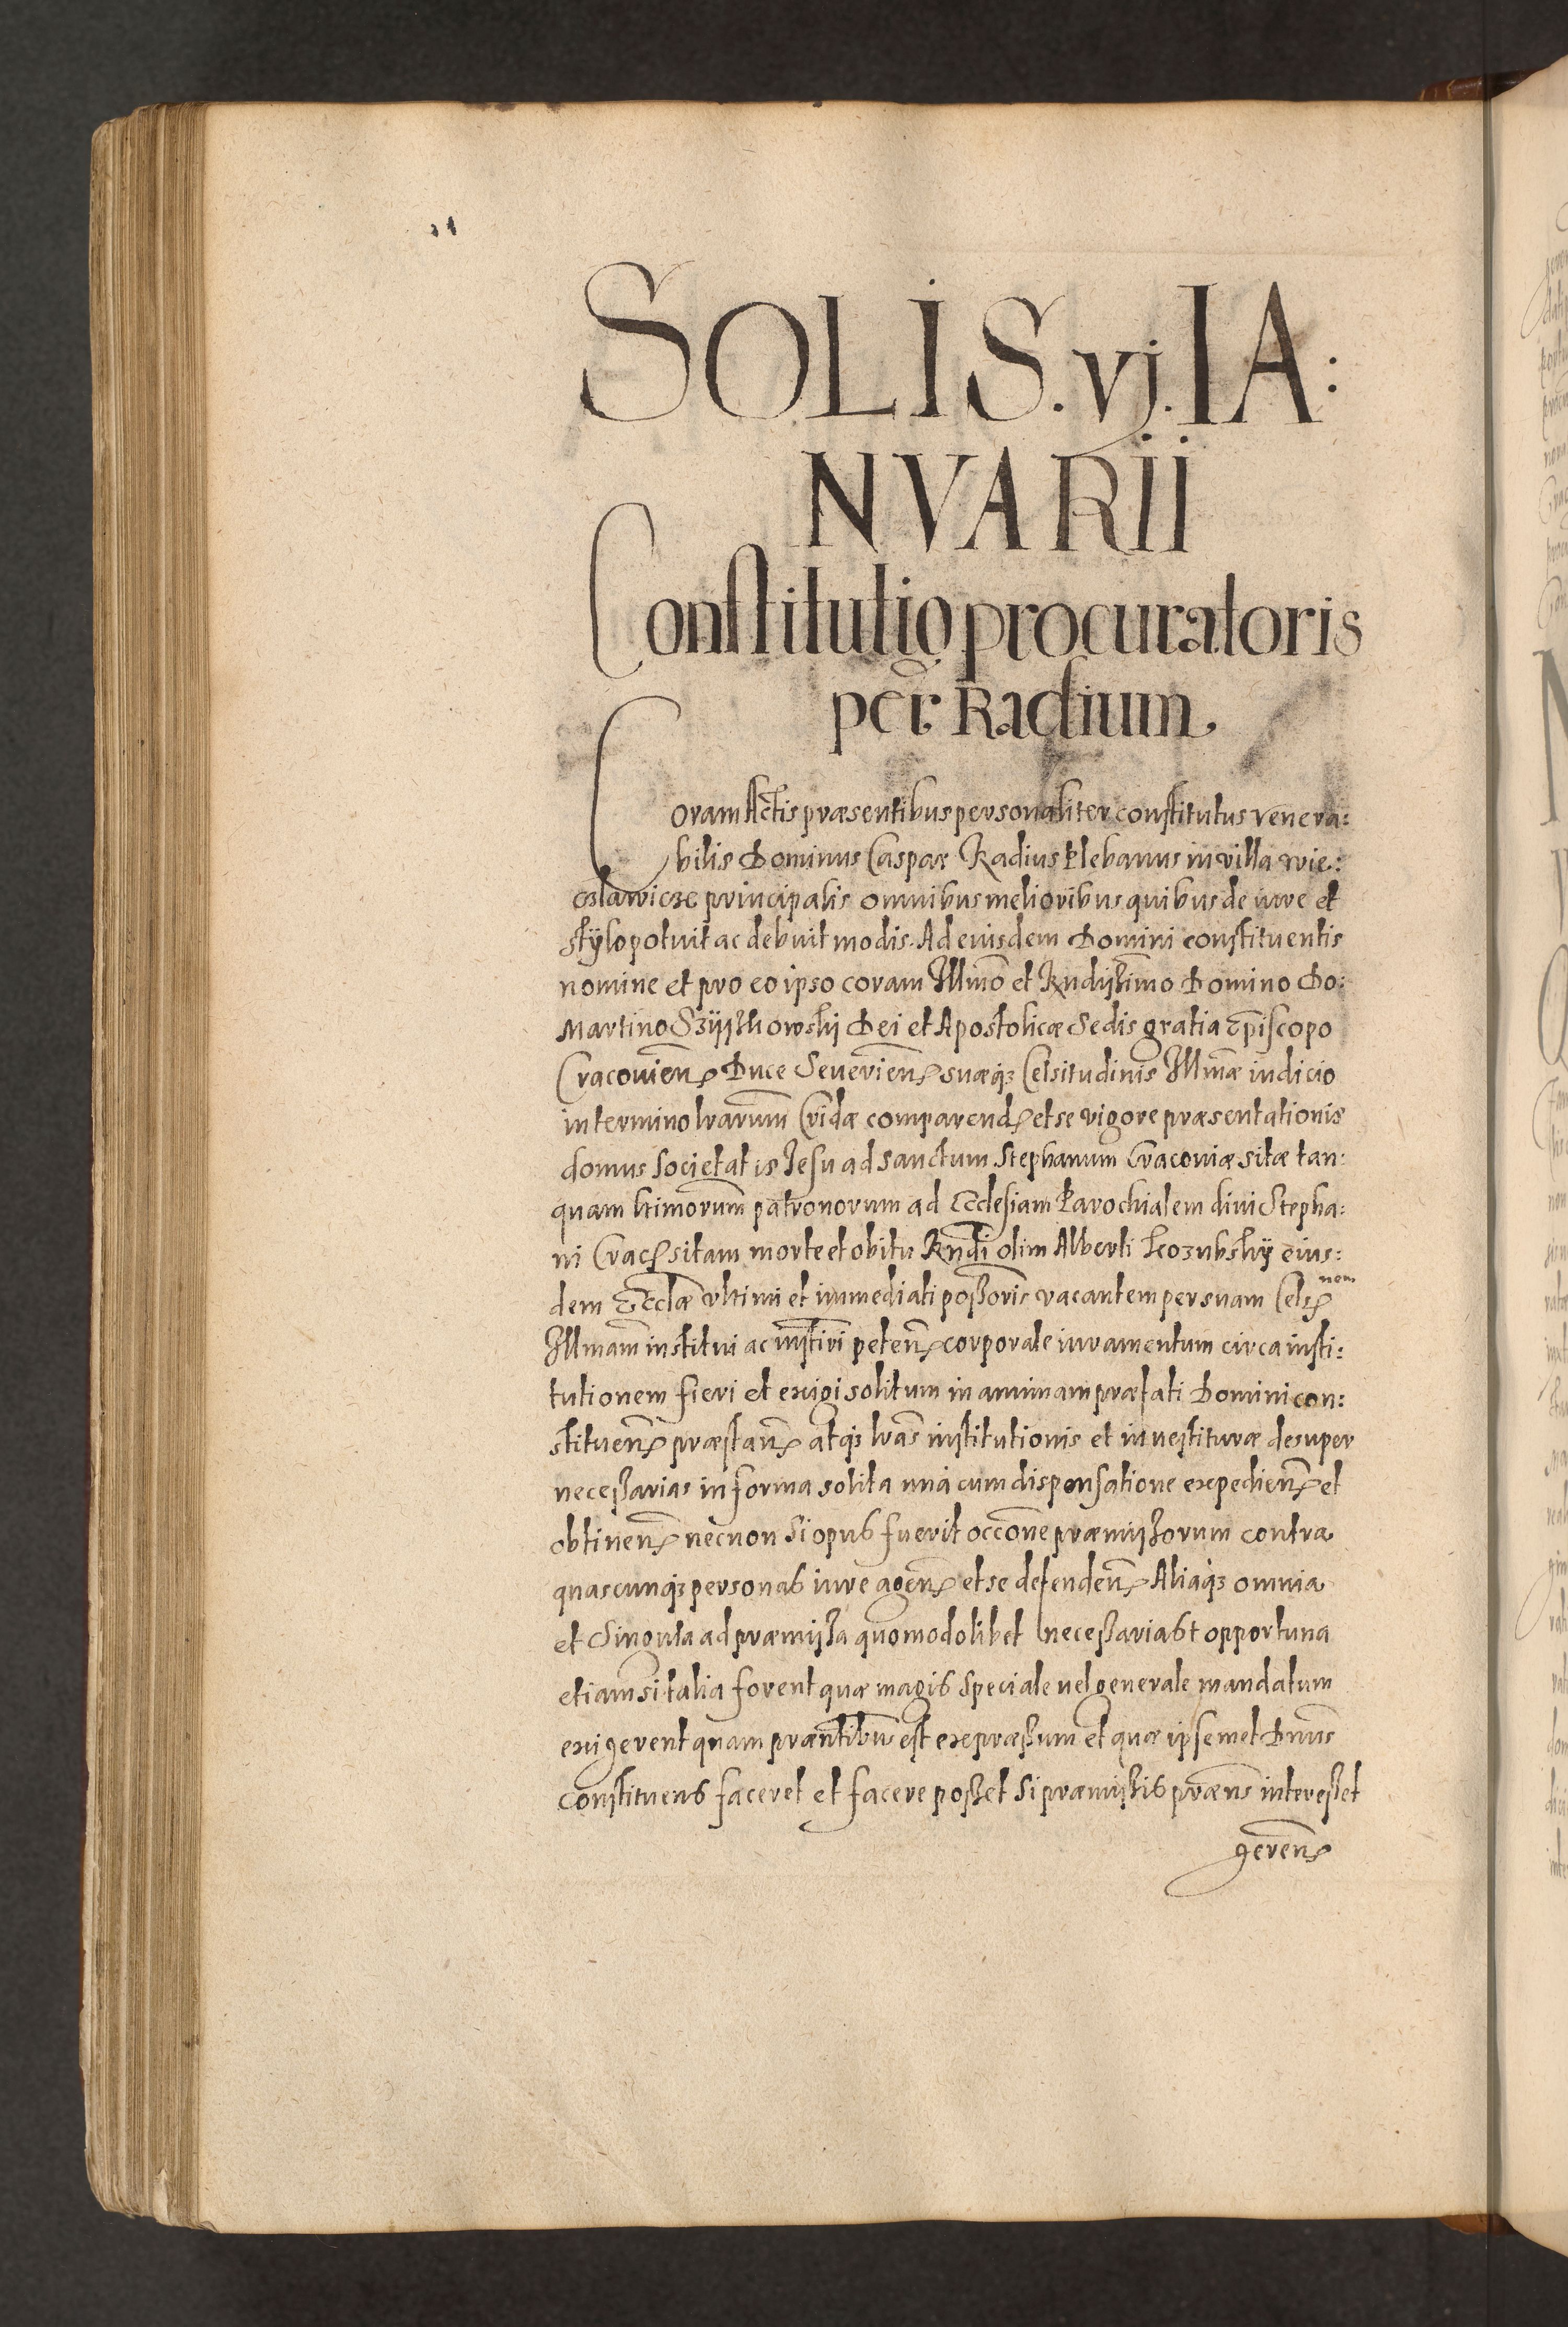 SOLIS. vj. IA:
NVARII
Constitutio procuratoris
per Radium
Coram Actis præsentibus personaliter constitutus venera:
bilis Dominus Caspar Radius Plebanus in villa Wie:
czlawicze principalis omnibus melioribus quibus de iure et
stÿlo potuit ac debuit modis. Ad eiusdem Domini constituentis
nomine et pro eo ipso coram Illmo et Rndissimo Domino Do:
Martino Szÿszkowskj Dei et Apostolicæ Sedis gratia Episcopo
Cracovien Duce Severien suæq; Celsitudinis Illmæ iudicio
in termino lrarum Cridæ comparend et se vigore præsentationis
domus Societatis Jesu ad Sanctum Stephanum Cracoviæ sitæ tan:
quam ltimorum patronorum ad Ecclesiam Parochialem divi Stepha:
ni Crac sitam morte et obitu Rndi olim Alberti Kozubskÿ eius:
dem Ecclæ vltimi et immediati possoris vacantem per suam Cels nem
Illmam institui ac instiri peten corporale iuramentum circa insti:
tutionem fieri et exigi solitum in animam præfati Domini con:
stituen præstan atq; lras institutionis et investituræ desuper
necessarias in forma solita unà cum dispensatione expedien et
obtinen necnon Si opus fuerit occone præmissorum contra
quascunq; personas iure agen et se defenden Aliaq; omnia
et Singula ad præmissa quomodolibet necessaria et opportuna
etiamsi talia forent quæ magis speciale vel generale mandatum
exigerent quam præntibus est expræssum et quæ ipsemet Dnus
constituens faceret et facere posset Si præmissis præns interesset
geren